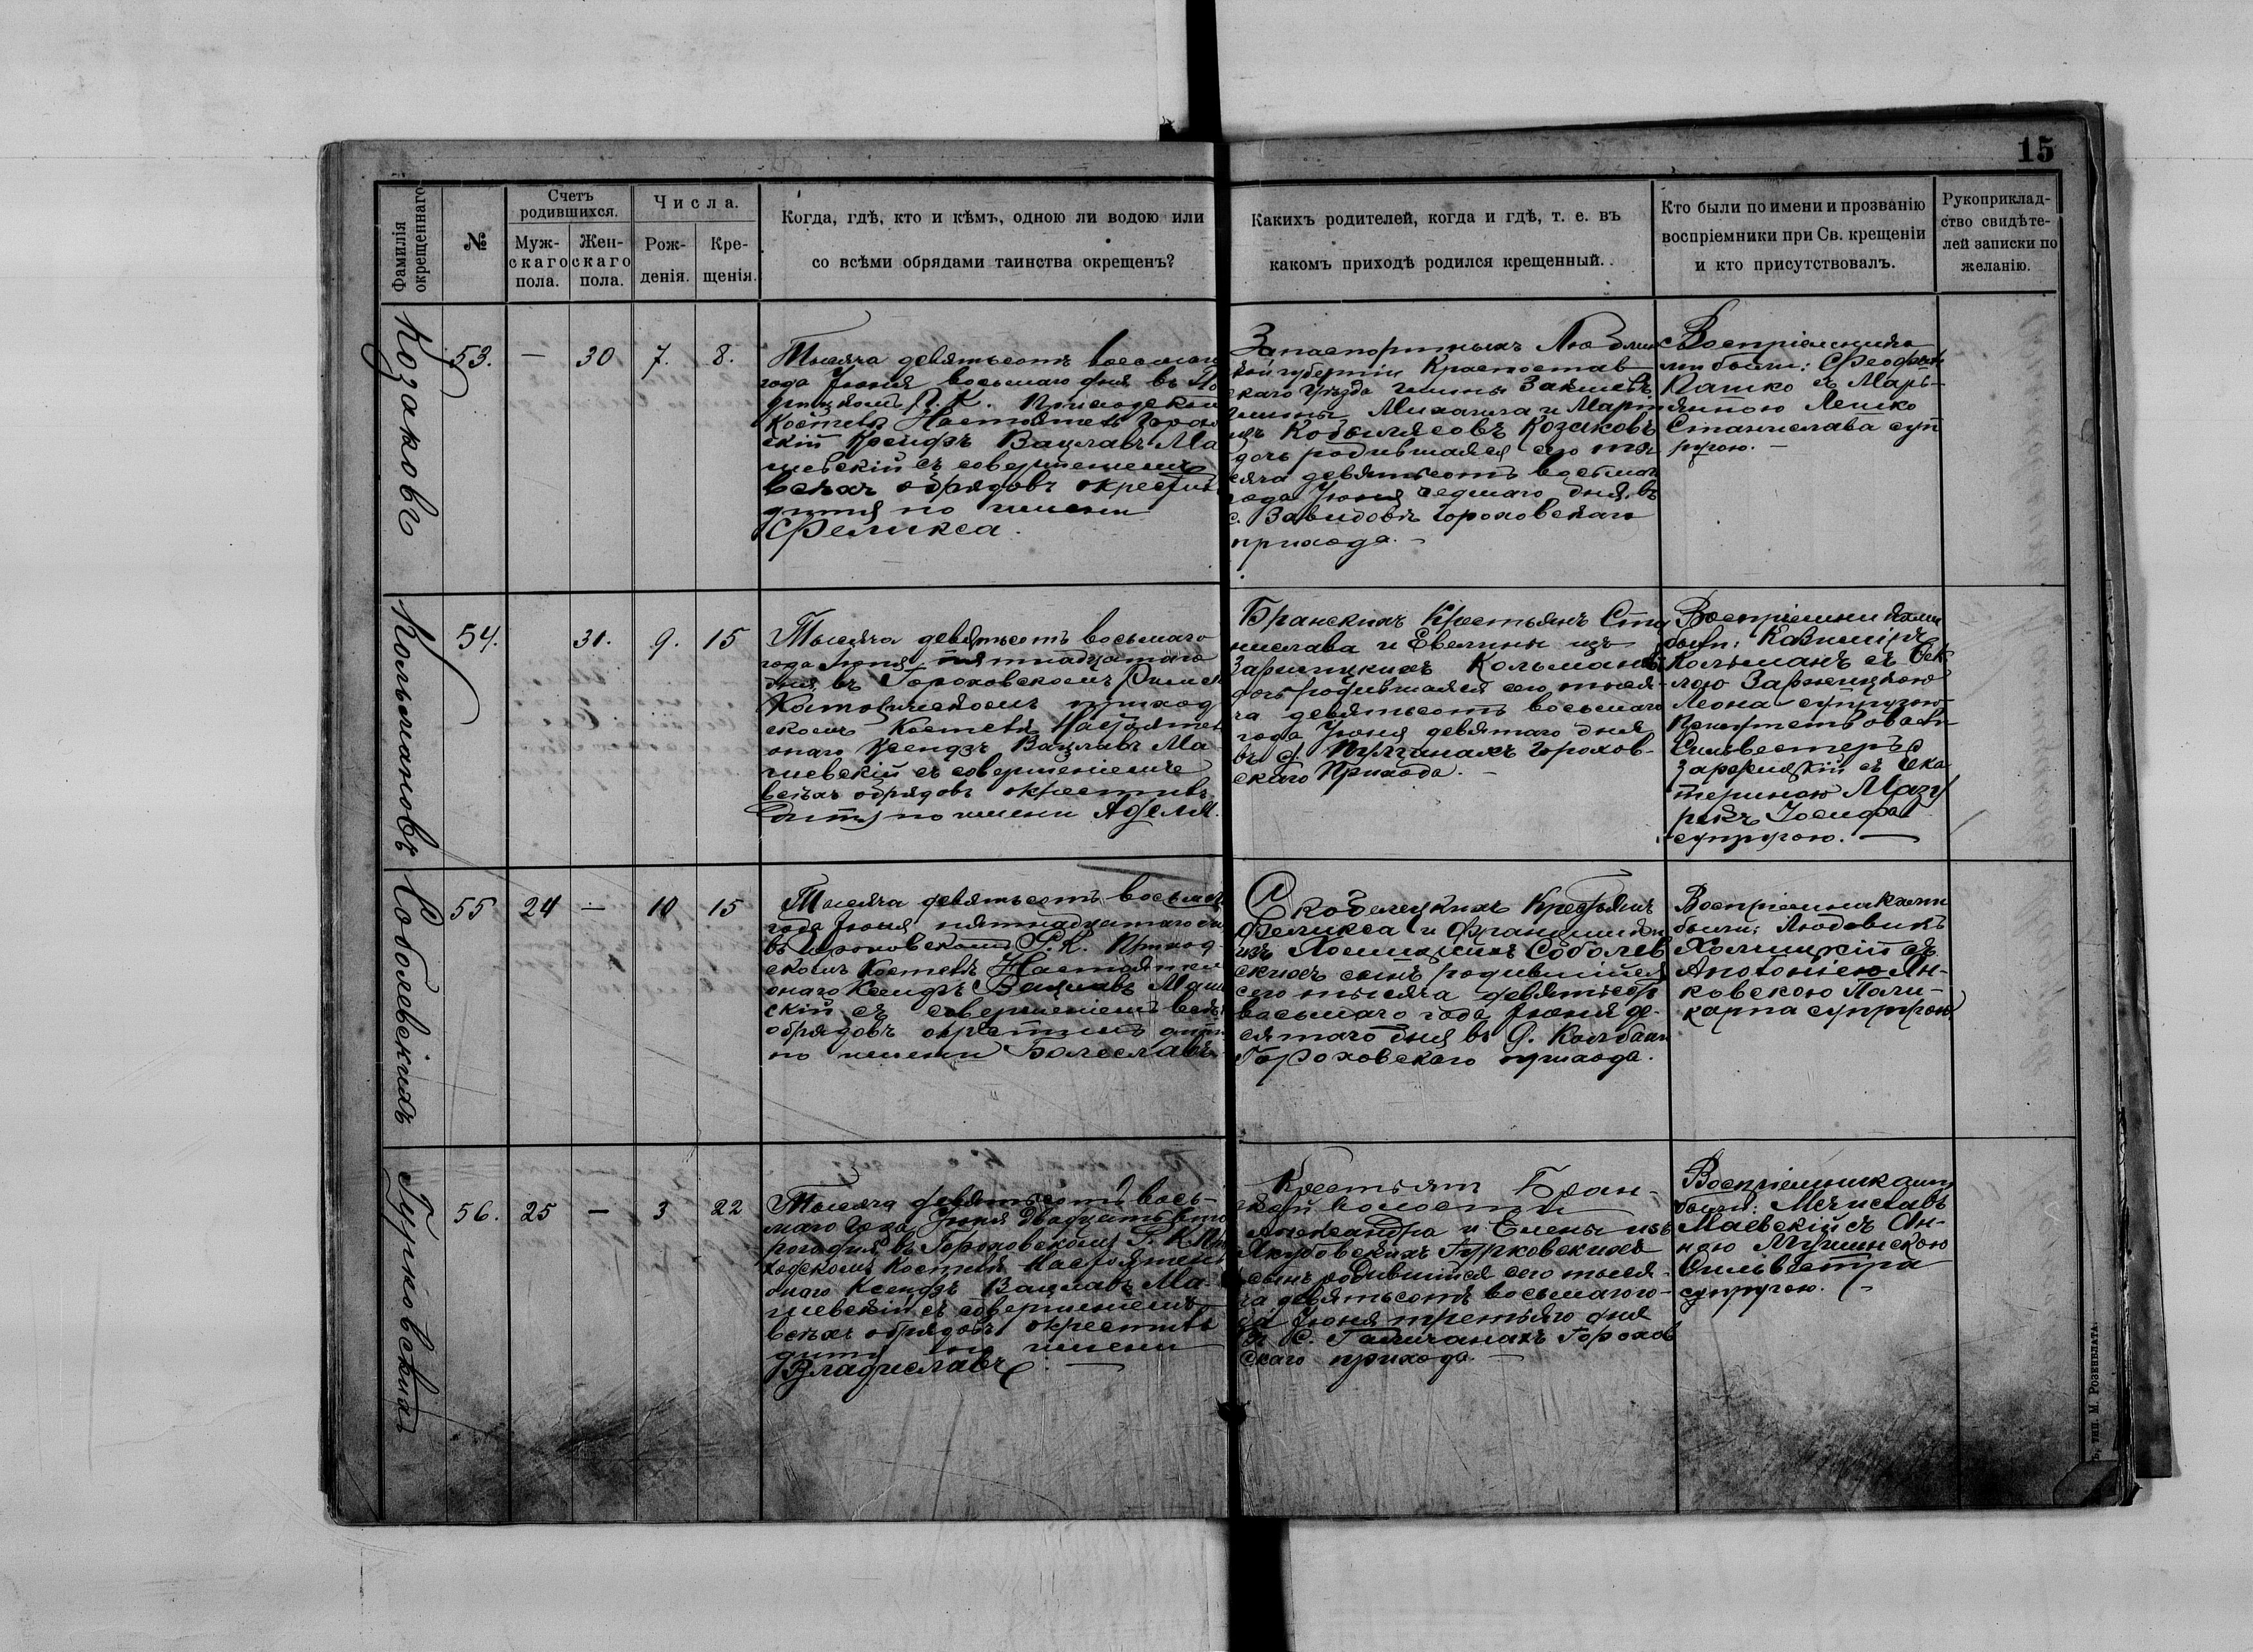 15
Фамилія окрещеннаго
№
Счетъ родившихся.
Муж-
скаго
пола.
Жен-
скаго
пола.
Числа.
Рож-
денія.
Кре-
щенія.
Когда, гдѣ, кто и кѣмъ, одною ли водою или
со всѣми обрядами таинства окрещенъ?
Какихъ родителей, когда и гдѣ, т. е. въ
какомъ приходѣ родился крещенный.
Кто были по имени и прозванію
воспріемники при Св. крещеніи
и кто присутствовалъ.
Рукоприклад-
ство свидѣте-
лей записки по
желанію.
Козаковъ
53. — 30 7. 8.
Тысяча девятьсотъ
года Іюня восьмаго дня въ
Р. К. Приходскомъ
Костелѣ Настоятель
скій Ксендзъ Вацлавъ Ма
шевскій съ совершеніемъ
всѣхъ обрядовъ окрестилъ
дитя по имени
Феликса.
Запаспортныхъ Люблин
ской губерніи Красностав
скаго Уѣзда гмины
гмины Михаила и Март
Козаковъ
дочь родившаяся сего ты
сяча девятьсотъ восьмаго
года Іюня седмаго дня въ
с. Завидовъ Гороховскаго
прихода. —
Воспріемника
ми были:
съ Марь-
янною
Станислава суп
ругою. —
Кольмановъ
54. 31. 9. 15
Тысяча девятьсотъ восьмаго
года Іюня пятнадцатаго
дня въ Гороховскомъ Римск
Католическомъ приход
скомъ Костелѣ Настоятель
онаго Ксендзъ Вацлавъ Ма
шевскій съ совершеніемъ
всѣхъ обрядовъ окрестилъ
дитя по имени Адели.
Бранскихъ Крестьянъ Ста
нислава и Евелины изъ
Заржицкихъ Кольмановъ
дочь родившаяся сего тыся-
ча девятьсотъ восьмаго
года Іюня девятаго дня
въ с. Горохов-
скаго Прихода. —
Воспріемниками
были: Казиміръ
Кольманъ съ Ѳек
лою Заржицкою
Леона супругою
Сильвестеръ
съ Ека
териною Мазу
рекъ Іосифа
супругою. —
Соболевскихъ
55 24 — 10 15
Тысяча девятьсотъ восьмаго
года Іюня пятнадцатаго дня
въ Гороховскомъ Р. К. Приход-
скомъ Костелѣ Настоятель
онаго Ксендзъ Вацлавъ Маше
скій съ совершеніемъ всѣхъ
обрядовъ окрестилъ дитя
по имени Болеславъ
Скобелецкихъ Крестьянъ
Феликса и Францишки
изъ Соболев
скихъ сынъ родившійся
сего тысяча девятьсотъ
восьмаго года Іюня де-
сятаго дня въ с.
Гороховскаго прихода.
Воспріемниками
были; Людовикъ
съ
Аполоніею Ян-
ковскою Поли-
карпа супругою
Гурковскихъ
56. 25 — 3 22
Тысяча девятьсотъ вось-
маго года Іюня двадцать вто
рого дня въ Гороховскомъ Р. К. При
ходскомъ Костелѣ Настоятель
онаго Ксендзъ Вацлавъ Ма-
шевскій съ совершеніемъ
всѣхъ обрядовъ окрестилъ
дитя по имени
Владиславъ. —
Крестьянъ Бран-
ской волости
Александра и Елены изъ
Якубовскихъ Гурковскихъ
сынъ родившійся сего тыся-
ча девятьсотъ восьмаго го-
да Іюня третьяго дня
въ с. Галичанахъ Горохов
скаго прихода. —
Воспріемниками
были: Мечиславъ
Маевскій съ Ан-
ною
Сильвестра
супругою. —
тип. М. Розенблата.